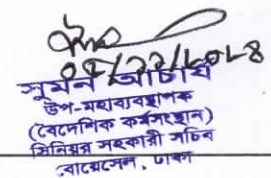 সুমন আচার্য
উপ-মহাব্যবস্থাপক
(বৈদেশিক কর্মসংস্থান)
সিনিয়র সহকারী সচিব
বোয়েসেল, ঢাকা